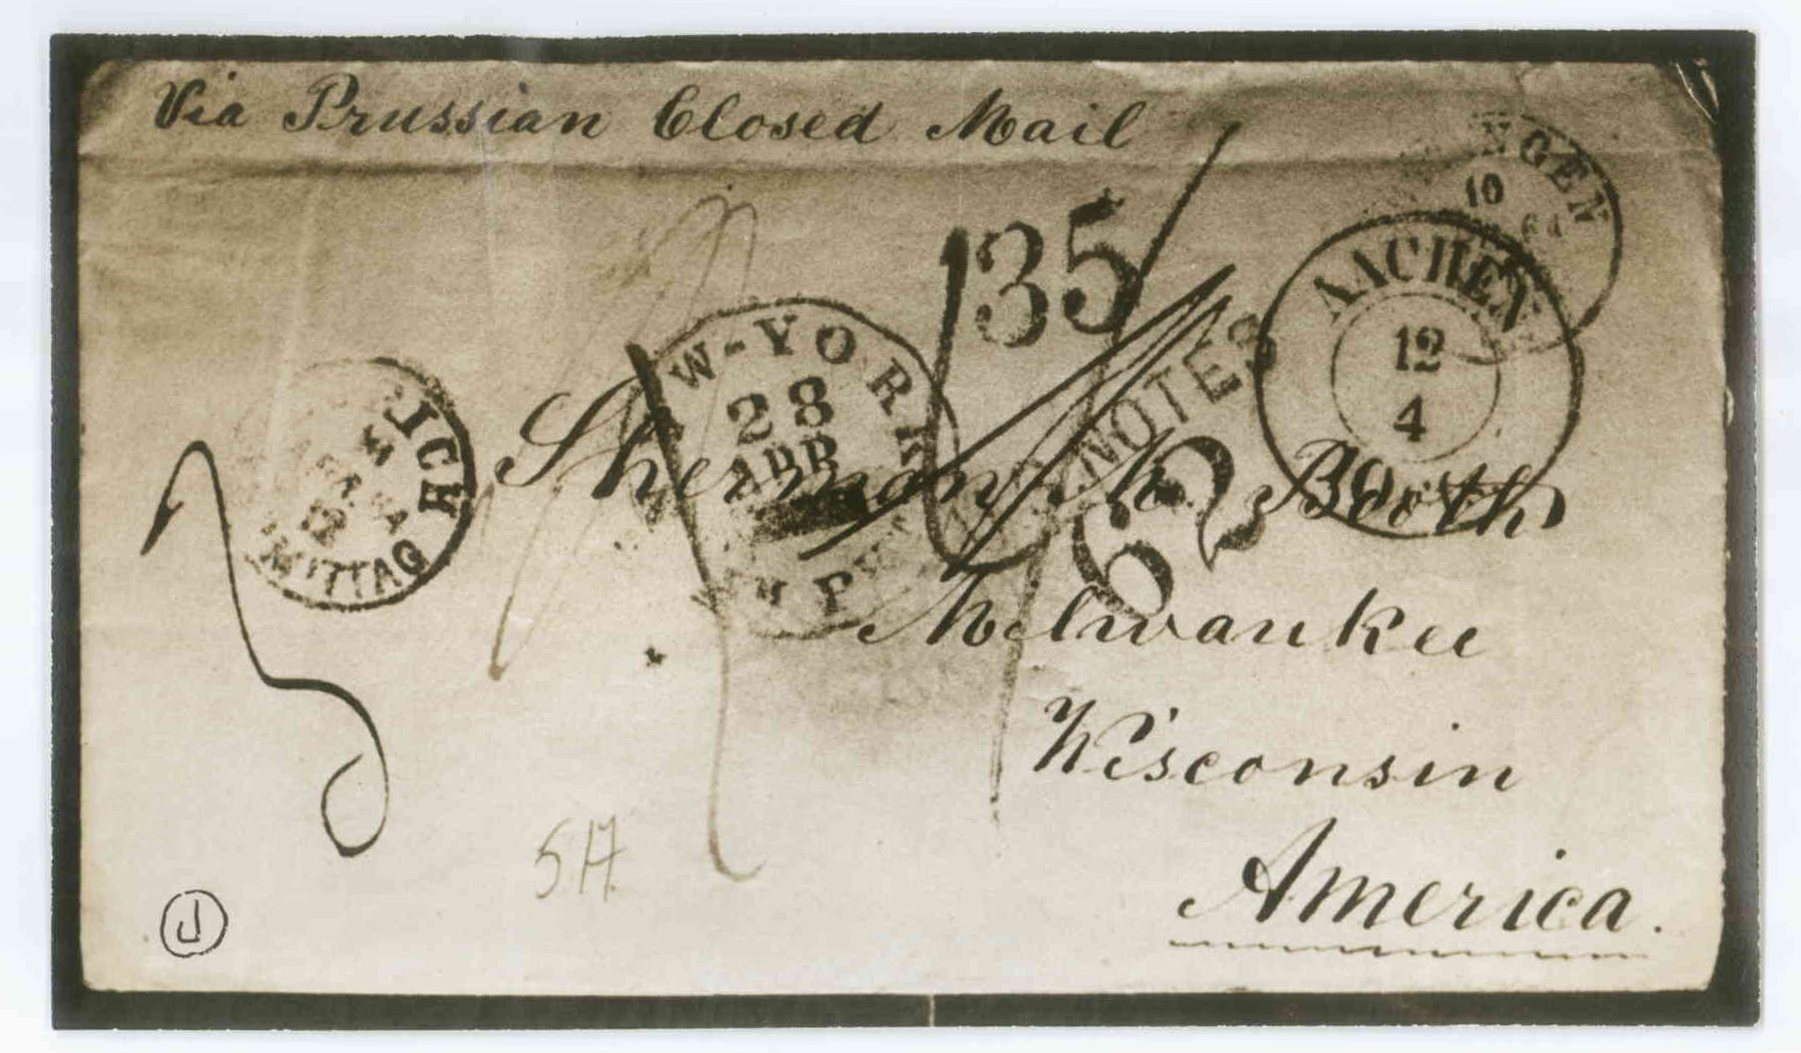 Via Prussian Closed Mail
NGEN
10
64
AACHEN
12
4
35
W-YORK
28
APR
P
NOTES
62
ICH
12
MITTAG
Sherman M. Booth
Milwaukee
Wisconsin
America.
J